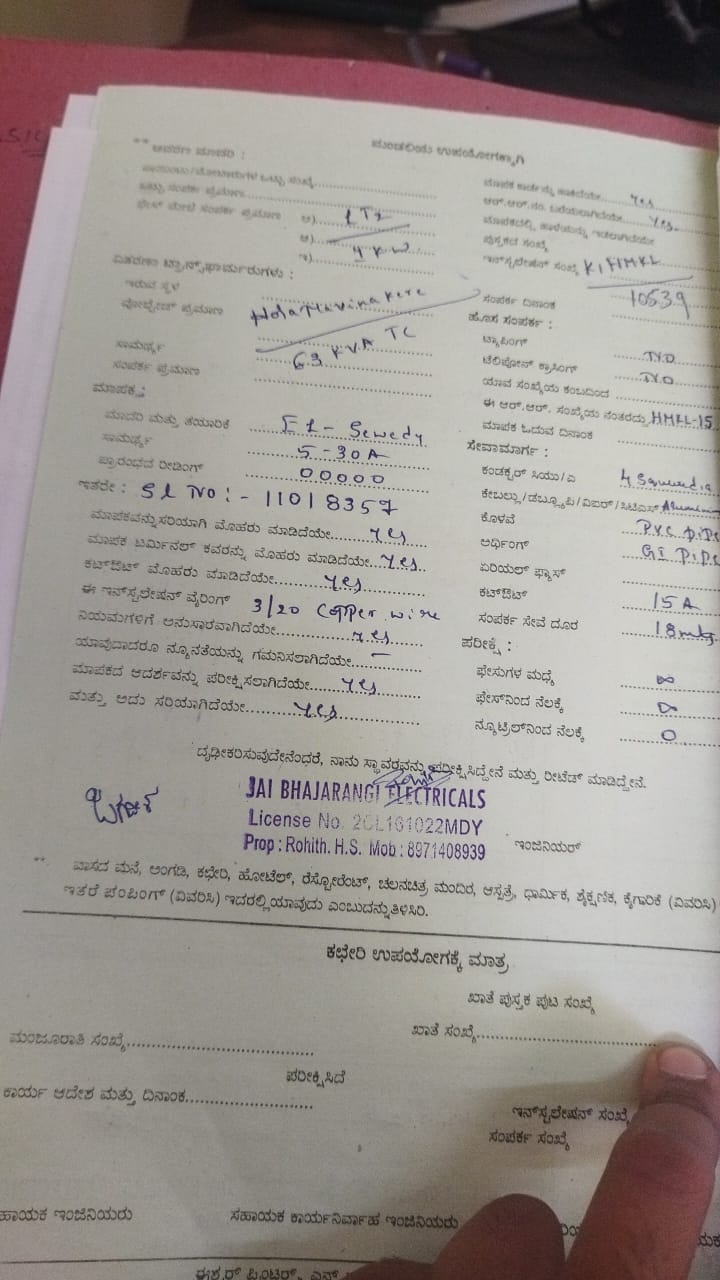 ಮಂಡಲಿಯ ಉಪಯೋಗಕ್ಕಾಗಿ
** ಆವರಣ ಮಾದರಿ :
ಒಟ್ಟು ಸಂಪರ್ಕ ಪ್ರಮಾಣ
ಅ)
ಆ)
4 KW
ಇ)
ವಿತರಣಾ ಟ್ರಾನ್ಸ್‌ಫಾರ್ಮರುಗಳು :
ಇರುವ ಸ್ಥಳ
ವೋಲ್ಟೇಜ್ ಪ್ರಮಾಣ
ಸಾಮರ್ಥ್ಯ 63 KVA TC
ಸಂಪರ್ಕ ಪ್ರಮಾಣ
ಮಾಪಕ :
ಮಾದರಿ ಮತ್ತು ತಯಾರಿಕೆ EL- Sewedy
ಸಾಮರ್ಥ್ಯ 5-30A
ಪ್ರಾರಂಭದ ರೀಡಿಂಗ್ 00000
ಇತರೇ : Sl No :- 11018357
ಮಾಪಕವನ್ನು ಸರಿಯಾಗಿ ಮೊಹರು ಮಾಡಿದೆಯೇ yes
ಮಾಪಕ ಟರ್ಮಿನಲ್ ಕವರನ್ನು ಮೊಹರು ಮಾಡಿದೆಯೇ yes
ಕಟ್‌ಔಟ್ ಮೊಹರು ಮಾಡಿದೆಯೇ yes
ಈ ಇನ್‌ಸ್ಟಲೇಷನ್ ವೈರಿಂಗ್ 3/20 Copper wire
ನಿಯಮಗಳಿಗೆ ಅನುಸಾರವಾಗಿದೆಯೇ yes
ಯಾವುದಾದರೂ ನ್ಯೂನತೆಯನ್ನು ಗಮನಿಸಲಾಗಿದೆಯೇ –
ಮಾಪಕದ ಆದರ್ಶವನ್ನು ಪರೀಕ್ಷಿಸಲಾಗಿದೆಯೇ yes
ಮತ್ತು ಅದು ಸರಿಯಾಗಿದೆಯೇ yes
yes
yes
ಪುಸ್ತಕದ ಸಂಖ್ಯೆ
ಇನ್‌ಸ್ಟಲೇಷನ್ ಸಂಖ್ಯೆ
10539
ಸಂಪರ್ಕ ದಿನಾಂಕ
ಹೊಸ ಸಂಪರ್ಕ :
ಟ್ಯಾಪಿಂಗ್ NO
ಟೆಲಿಪೋನ್ ಕ್ರಾಸಿಂಗ್ NO
ಯಾವ ಸಂಖ್ಯೆಯ ಕಂಬದಿಂದ
ಈ ಆರ್.ಆರ್. ಸಂಖ್ಯೆಯ ನಂತರದ್ದು HMKL-15
ಮಾಪಕ ಓದುವ ದಿನಾಂಕ
ಸೇವಾಮಾರ್ಗ :
ಕಂಡಕ್ಟರ್ ಸಿಯು/ಎ
ಕೇಬಲ್ಲು/ಡಬ್ಲ್ಯೂಪಿ/ವಿಐಆರ್/ಸಿಟಿಎಸ್
ಕೊಳವೆ PVC pipe
ಅರ್ಥಿಂಗ್ GI pipe
ಏರಿಯಲ್ ಫ್ಯೂಸ್
ಕಟ್‌ಔಟ್ 15A
ಸಂಪರ್ಕ ಸೇವೆ ದೂರ 18mts
ಪರೀಕ್ಷೆ :
ಫೇಸುಗಳ ಮಧ್ಯೆ ∞
ಫೇಸ್‌ನಿಂದ ನೆಲಕ್ಕೆ ∞
ನ್ಯೂಟ್ರಲ್‌ನಿಂದ ನೆಲಕ್ಕೆ 0
ದೃಢೀಕರಿಸುವುದೇನೆಂಧರೆ, ನಾನು ಸ್ಥಾವರವನ್ನು ಪರೀಕ್ಷಿಸಿದ್ದೇನೆ ಮತ್ತು ರೀಟೆಡ್ ಮಾಡಿದ್ದೇನೆ.
JAI BHAJARANGI ELECTRICALS
License No. 2CL161022MDY
Prop : Rohith. H.S. Mob : 8971408939
ಇಂಜಿನಿಯರ್
** ವಾಸದ ಮನೆ, ಅಂಗಡಿ, ಕಛೇರಿ, ಹೋಟೆಲ್, ರೆಸ್ಟೋರೆಂಟ್, ಚಲನಚಿತ್ರ ಮಂದಿರ, ಆಸ್ಪತ್ರೆ, ಧಾರ್ಮಿಕ, ಶೈಕ್ಷಣಿಕ, ಕೈಗಾರಿಕೆ (ವಿವರಿಸಿ)
ಇತರೆ ಪಂಪಿಂಗ್ (ವಿವರಿಸಿ) ಇದರಲ್ಲಿ ಯಾವುದು ಎಂಬುದನ್ನು ತಿಳಿಸಿರಿ.
ಕಛೇರಿ ಉಪಯೋಗಕ್ಕೆ ಮಾತ್ರ
ಖಾತೆ ಪುಸ್ತಕ ಪುಟ ಸಂಖ್ಯೆ
ಖಾತೆ ಸಂಖ್ಯೆ
ಮಂಜೂರಾತಿ ಸಂಖ್ಯೆ
ಪರೀಕ್ಷಿಸಿದೆ
ಕಾರ್ಯ ಆದೇಶ ಮತ್ತು ದಿನಾಂಕ
ಇನ್‌ಸ್ಟಲೇಷನ್ ಸಂಖ್ಯೆ
ಸಂಪರ್ಕ ಸಂಖ್ಯೆ
ಹಾಯಕ ಇಂಜಿನಿಯರು
ಸಹಾಯಕ ಕಾರ್ಯನಿರ್ವಾಹ ಇಂಜಿನಿಯರು